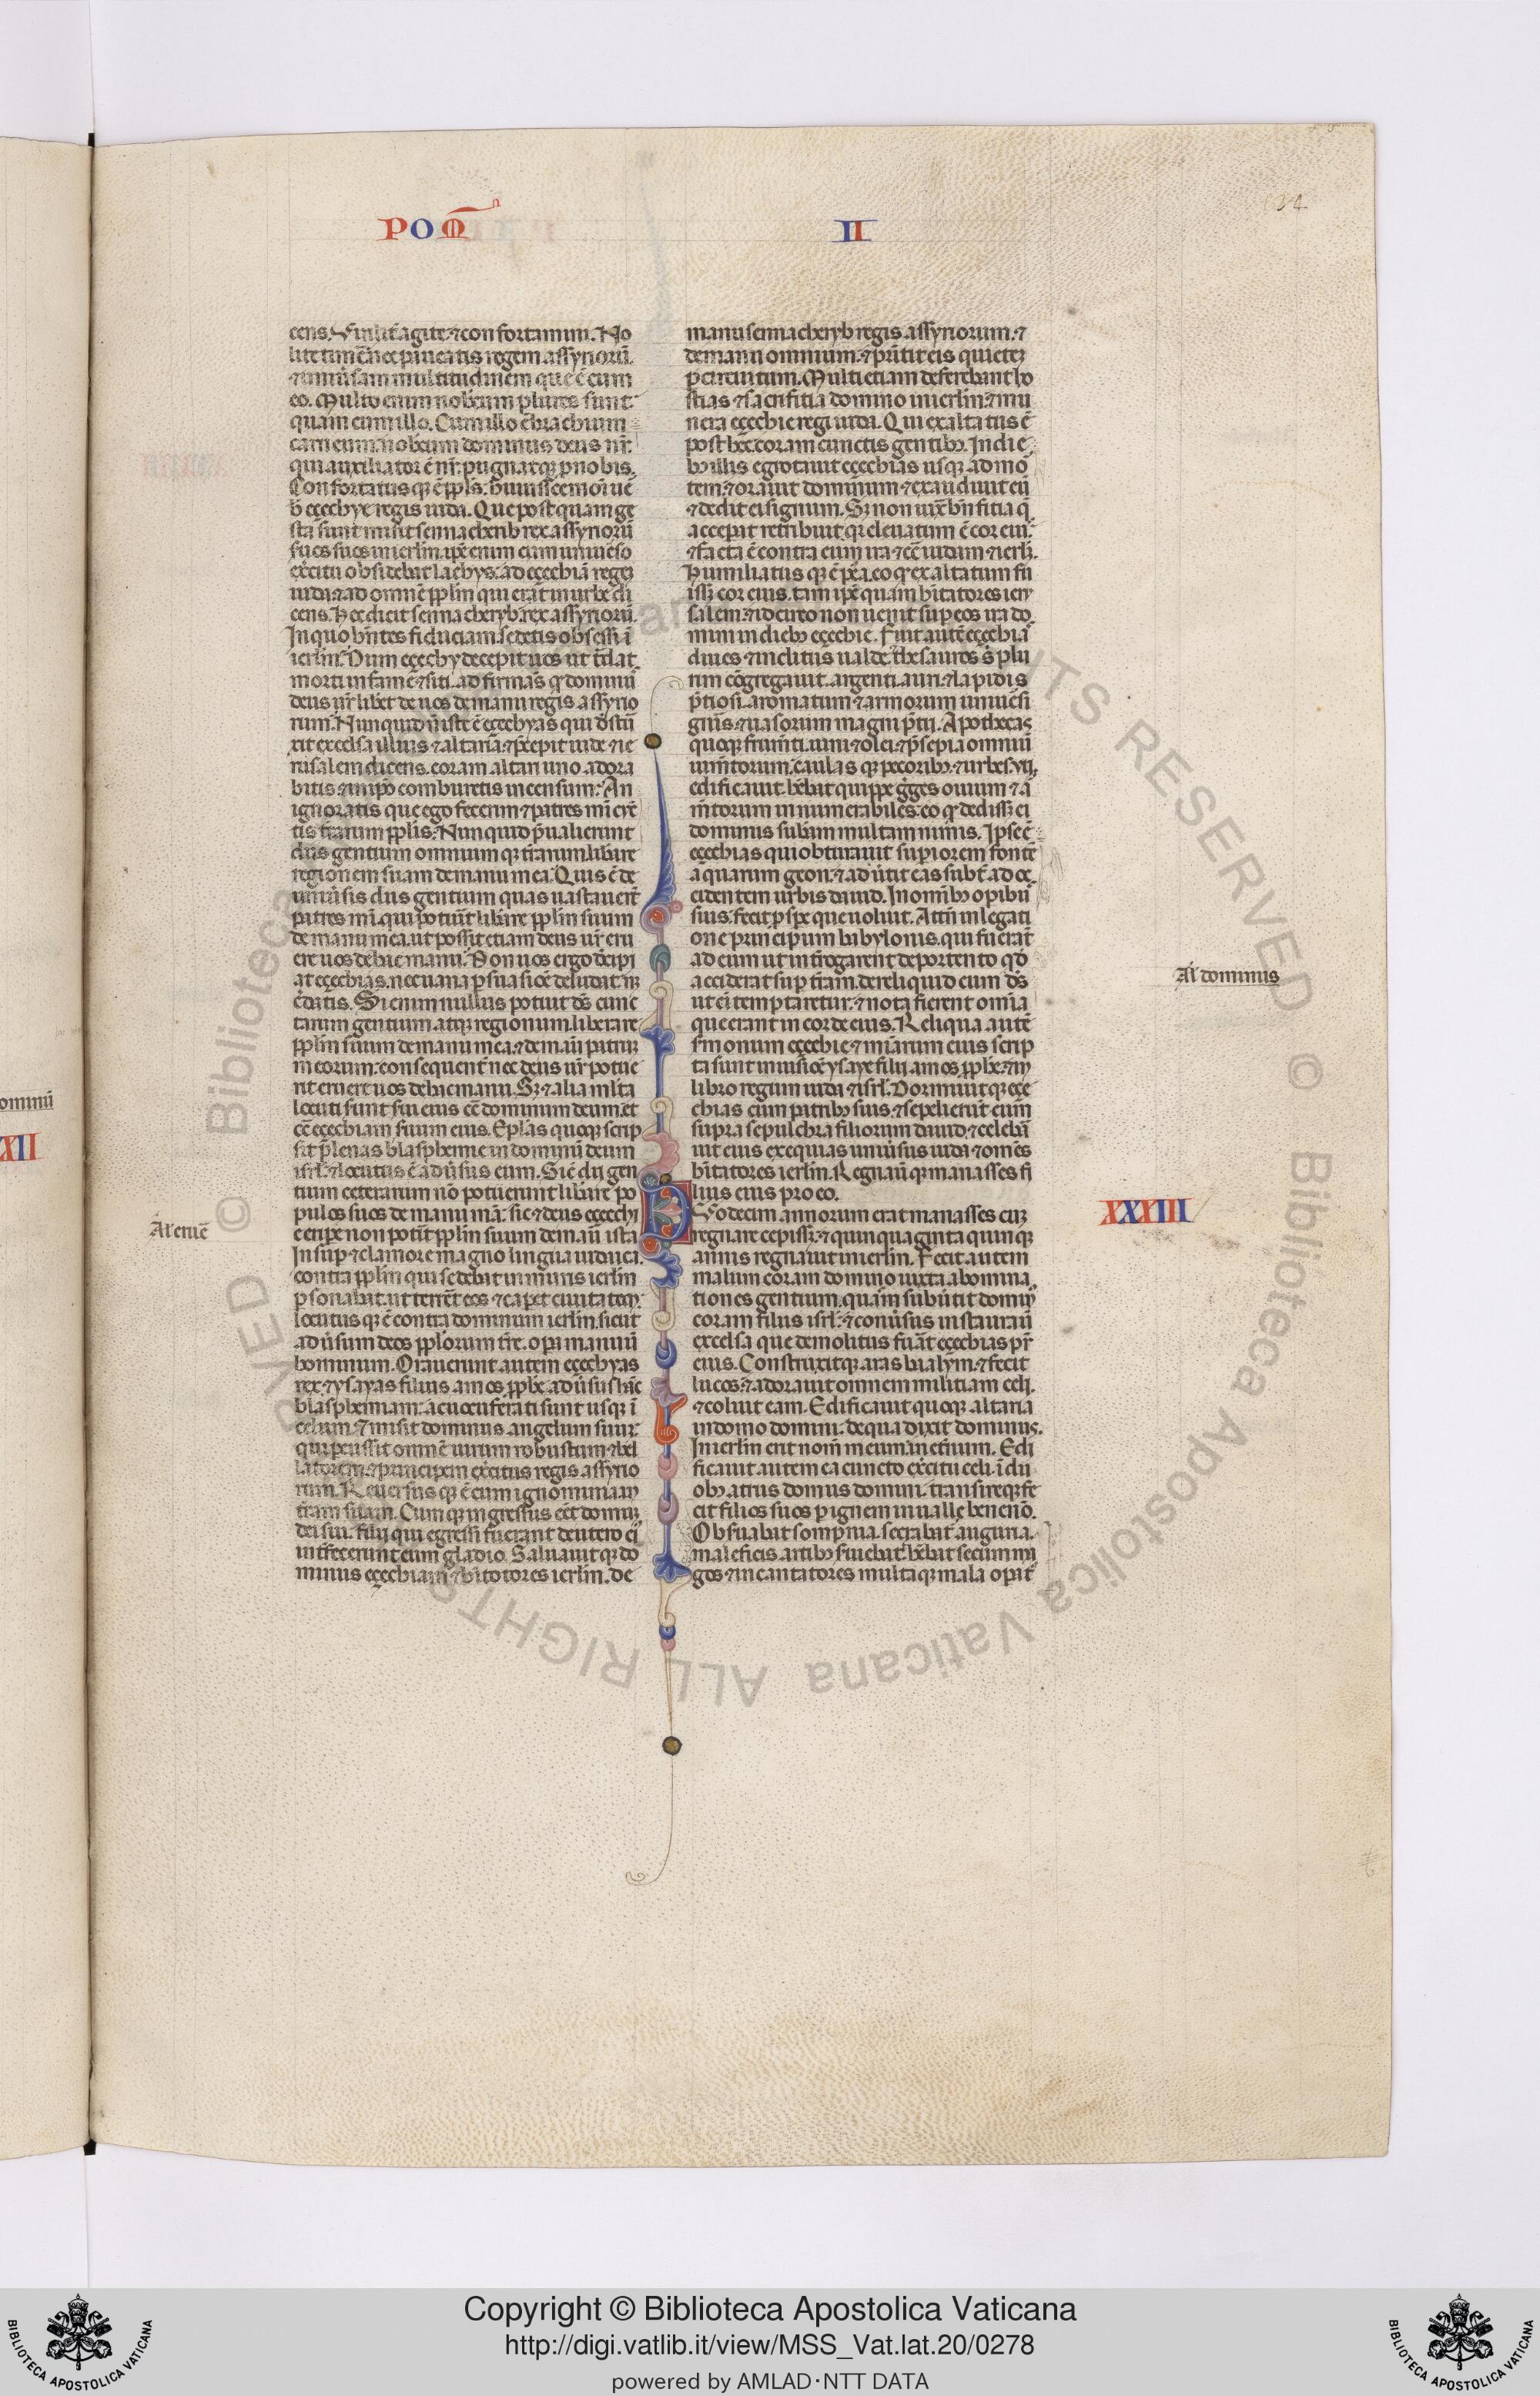 134
POM̅
II
cens. Virilit̾ agite ⁊ confortamini. No
lite timẽ nec paueatis regem assyrioꝝ̃
⁊ uniu̾sam multitudinem que ẽ cum
eo. Multo enim nobcum plures sunt
quam cum illo. Cum illo ẽ brachium
carneum: nobcum dominus deus nr̃:
qui auxiliator ẽ nr̃: pugnatqꝫ ꝓ nobis.
Confortatus qꝫ ẽ pp̃ls. hui'scemõi uẽ
b̾ eçechye regis iuda. Que postquam ge
sta sunt misit sennacherib rex assyrioꝝ̃
suos suos in ierlm̃. ip̃e enim cum uniu̾so
ex̾citu obsidebat lachys: ad eçechiã regeꝫ
iuda: ⁊ ad omnẽ pp̃lm qui erat in urbe di
cens. Hec dicit sennacheryb rex assyrioꝝ̃.
In quo hñtes fiduciam. sedetis obsessi ĩ
ierlm̃. Num eçechy decepit uos ut t̃dat
morti in fame ⁊ siti. ad firmans qꝫ dominus
deus ur̃ libet de uos de manu regis assyrio
rum. Nunquid n̾ iste ẽ eçechyas qui dstũ
xit excelsa illius ⁊ altaria. ⁊ p̾cepit iude ⁊ ie
rusalem dicens. coram altari uno adora
bitis ⁊ in ip̃o comburetis incensum: An
ignoratis que ego fecerim ⁊ patres mĩ cũc
tis t̃rarum pp̃lis: Nunquid p̾ualuerunt
dii gentium omnium qꝫ t̃rarum. lib̾are
regionem suam de manu mea: Quis ẽ de
uniu̾sis diis gentium quas uastauer̃t
patres mĩ. qui potuit lib̾are pp̃lm suum
de manu mea. ut possit etiam deus ur̃ eru
ere uos de hac manu. Non uos ergo decipi
at eçechias. nec uana ꝑsuasione deludat. neqꝫ
c̾datis. Si enim nullus potuit ds̃ cunc
tarum gentium atqꝫ regionum. liberare
pp̃lm suum de manu mea. ⁊ de manũ patrum
meorum: consequent̾ nec deus ur̃ potue
rit eruere uos de hac manu. Sꝫ ⁊ alia mlta
locuti sunt serui eius ct̃ dominum deum. et
ct̃ eçechiam suum eius. Epl̃as quoqꝫ scrip
sit plenas blasphemie in dominũ deum
isrl̃ ⁊ locutus ẽ adu̾sus eum. Sic̃ dii gen
tium ceterarum nõ potuerunt lib̾are po
pulos suos de manu mã: sic ⁊ deus eçechi
e eripe non potit̃ pp̃lm suum de manũ ista
Insup ⁊ clamore magno lingua iudaica
contra pp̃lm qui sedebat in muris ierlm̃
ꝑsonabat. ut terrẽt eos ⁊ cap̃et ciuitatem:
locutus qꝫ ẽ contra dominum ierlm̃. sicut
adu̾sum deos pp̃lorum t̃re. opa manuũ
hominum. Orauerunt autem eçechyas
rex. ⁊ ysayas filius amos. pp̃ha adu̾sus hãc
blasphemiam: ac uociferati sunt usqꝫ ĩ
celum. ⁊ misit dominus angelum suum
qui percussit omnẽ uirum robustum ⁊ bel
latorem. ⁊ principem ex̾citus regis assyrio
rum. Reuersus qꝫ ẽ cum ignominia in
t̃ram suam. Cum qꝫ ingressus eẽt domum
dei sui. filij qui egressi fuerant de utero ei'
int̾fecerunt eum gladio. Saluauit qꝫ do
minus eçechiam ⁊ hitotores ierlm̃. de
Al' eniẽ
manu sennacheryb regis assyriorum. ⁊
de manu omnium. ⁊ p̾stitit eis quietem
ꝑ circuitum. Multi etiam deferebant ho
stias ⁊ sacrifitia domino in ierlm̃. ⁊ mu
nera eçechie regi iuda. Qui exaltatus ẽ
post hec coram cunctis gentibꝫ. In die
bꝫ illis egrotauit eçechias usqꝫ ad mo
tem. ⁊ orauit dominum ⁊ exaudiuit eũ
⁊ dedit ei signum. Sꝫ non iuxᵃ bñfitia q̃
acceperat retribuit. qꝫ eleuatum ẽ cor eius.
⁊ facta ẽ contra eum ira ⁊ ct̃ iudam ⁊ ierlm̃.
Humiliatus qꝫ ẽ p̾ea. eo qꝫ exaltatum fu
isset cor eius. tam ip̃e quam hitatores ieru
salem. ⁊ idcirco non uenit sup eos ira do
mini in diebꝫ eçechie. Fuit autẽ eçechias
diues ⁊ inclitus ualde. thesauros s plu
rim' cõgregauit. argenti. auri. ⁊ lapidis
p̾tiosi. aromatum ⁊ armorum uniu̾si
gnis. ⁊ uasorum magni p̾tij. Apothecas
quoqꝫ frum̃ti. uini ⁊ olei. ⁊ p̾sepia omniũ
ium̃torum. caulas qꝫ pecoribꝫ. ⁊ urbes. vi.
edificauit. hebat quippe gges ouium ⁊ a
m̃torum innumerabiles. eo qꝫ dedisset ei
dominus subam multam nimis. Ipse ẽ
eçechias qui obturauit supiorem fontẽ
aquarum geon. ⁊ adu̾tit eas subt̾ ad oc
cidentem urbis dauid. In omibꝫ opibus
suis. fecit ꝓspe que uoluit. Attñ in legati
one principum babylonis. qui fuerat
ad eum ut int̾rogarent de portento qd̾
acciderat sup t̃ram. dereliquid eum ds̃
ut ei temptaretur: ⁊ nota fierent om̃ia
que erant in corde eius. Reliqua autẽ
s̾monum eçechie ⁊ mĩarum eius scrip
ta sunt in uisiõe ysaye filij amos pp̃he. ⁊ in
libro regum iuda ⁊ isrl̃. Dormiuit qꝫ eçe
chias cum patribꝫ suis. ⁊ sepelierũt eum
supra sepulchra filiorum dauid. ⁊ celebra
uit eius exequias uniu̾sus iuda ⁊ om̃es
hitatores ierlm̃. Regnauit qꝫ manasses fi
lius eius pro eo.
DVodecim annorum erat manasses cum
regnare cepisset. ⁊ quinquaginta quinqꝫ
annis regnauit in ierlm̃. Fecit autem
malum coram domino iuxta abomina
tiones gentium. quam subu̾tit dominus
coram filiis isrl̃. ⁊ conu̾sus instaurauit
excelsa que demolitus fũat eçechias pr̃
eius. Construxitqꝫ aras bialym. ⁊ fecit
lucos. ⁊ adorauit omnem militiam celi.
⁊ coluit eam. Edificauit quoqꝫ altaria
in domo domini. de qua dixit dominus.
In ierlm̃ erit nom̃ meum in et̾num. Edi
ficauit autem ea cuncto ex̾citu celi. ĩ du
obꝫ atriis domus domini. transireqꝫ fe
cit filios suos ꝑ ignem in ualle benenõ.
Obs̾uabat sompnia. sectabat̾ auguria.
maleficis artibꝫ s̾uiebat. hebat secum ma
gos ⁊ incantatores multaqꝫ mala opat'
Al' dominus
XXXIII
ominũ
XII
Copyright © Biblioteca Apostolica Vaticana
http://digi.vatlib.it/view/MSS_Vat.lat.20/0278
powered by AMLAD·NTT DATA
BIBLIOTECA APOSTOLICA VATICANA
BIBLIOTECA APOSTOLICA VATICANA